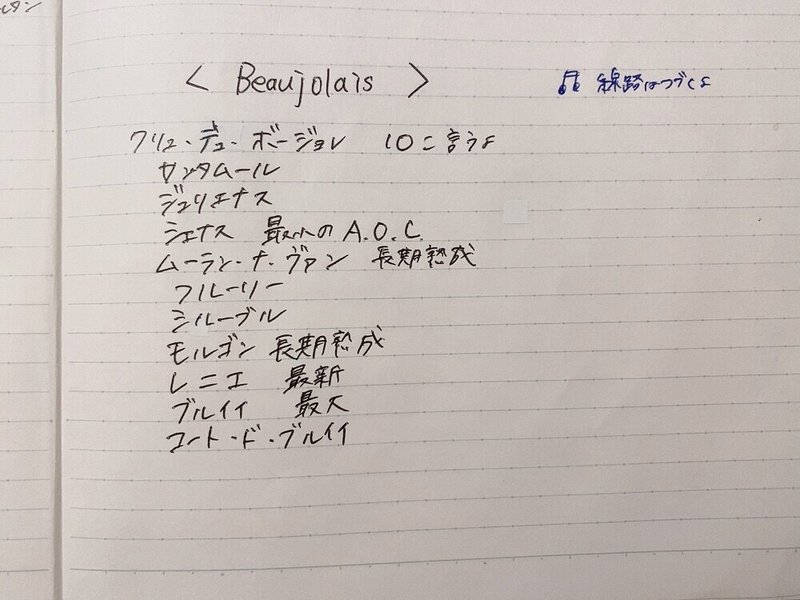 < Beaujolais >
♫ 線路はつづくよ
クリュ・デュ・ボージョレ 10こ言うよ
サンタムール
ジュリエナス
シェナス 最小のA.O.C.
ムーラン・ナ・ヴァン 長期熟成
フルーリー
シルーブル
モルゴン 長期熟成
レニエ 最新
ブルイイ 最大
コート・ド・ブルイイ